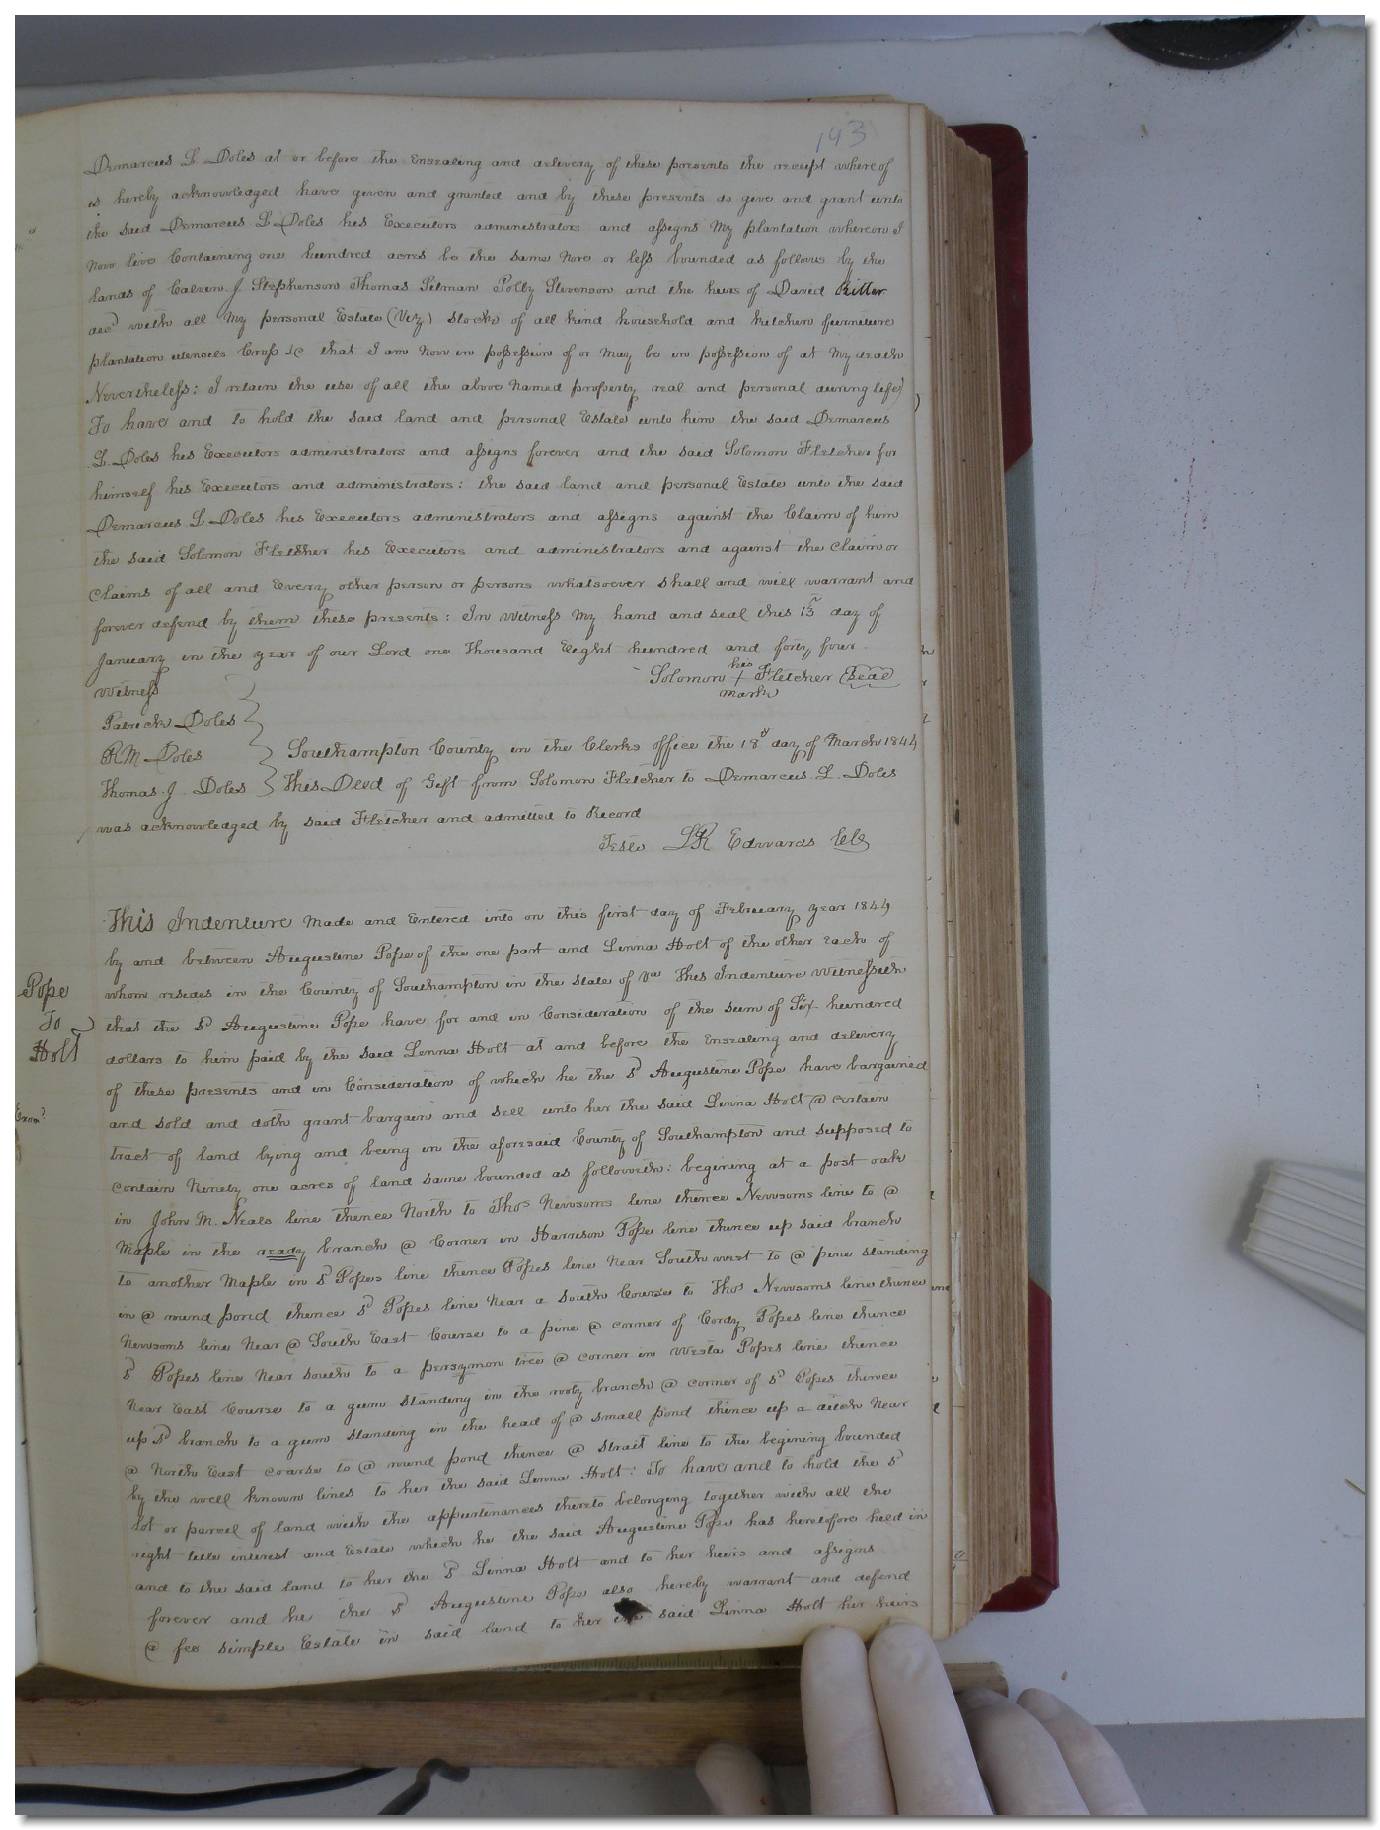 143
Demarcus L. Doles at or before the Ensealing and delivery of these presents the receipt whereof
is hereby acknowledged have given and granted and by these presents do give and grant unto
the said Demarcus L Doles his Executors administrators and assigns My plantation whereon I
Now live Containing one hundred acres be the same More or less bounded as follows by the
lands of Calvin J. Stephenson Thomas Pitman Polly Stevenson and the heirs of David Ritter
decd with all My personal Estate (Viz) Stocks of all kind household and kitchen furniture
plantation utencels Crops &c that I am Now in possession of or May be in possession of at My death
Nevertheless: I retain the use of all the above Named property real and personal during life)
To have and to hold the said land and personal Estate unto him the said Demarcus
L. Doles his Executors administrators and assigns forever and the said Solomon Fletcher for
himself his Executors and administrators: the said land and personal Estate unto the said
Demarcus L Doles his Executors administrators and assigns against the Claim of him
the said Solomon Fletcher his Executors and administrators and against the Claim or
Claims of all and Every other person or persons whatsoever shall and will warrant and
forever defend by them these presents: In Witness My hand and seal this 13 day of
January in the year of our Lord one Thousand Eight hundred and forty four
Witness
Solomon his + mark Fletcher Seal
Patrick Doles
R. M. Doles Southampton County in the Clerks office the 18 day of March 1844
Thomas. J. Doles This Deed of Gift from Solomon Fletcher to Demarcus. L. Doles
was acknowledged by said Fletcher and admitted to Record
Teste LR Edwards Clk
This Indenture Made and Entered into on this first day of February year 1844
by and between Augustine Pope of the one part and Linna Holt of the other Each of
whom resides in the County of Southampton in the State of Va This Indenture Witnesseth
Pope
To
Holt
that the sd Augustine Pope have for and in Consideration of the sum of Six hundred
dollars to him paid by the said Linna Holt at and before the Ensealing and delivery
of these presents and in Consideration of which he the sd Augustine Pope have bargained
Exam?
and sold and doth grant bargain and sell unto her the said Linna Holt @ certain
tract of land lying and being in the aforesaid County of Southampton and supposed to
contain Ninety one acres of land same bounded as followeth: begining at a post oak
in John M. Neals line thence North to Thos Newsoms line thence Newsoms line to @
Maple in the ready branch @ Corner in Harrison Pope line thence up said branch
to another Maple in sd Popes line thence Popes line Near South west to @ pine standing
in @ round pond thence sd Popes line Near a South Course to Thos Newsoms line thence
Newsoms line Near @ South East Course to a pine @ corner of Cordy Popes line thence
sd Popes line Near South to a persymon tree @ corner in Westa Popes line thence
Near East Course to a gum standing in the rooty branch @ corner of sd Popes thence
up sd branch to a gum standing in the head of @ small pond thence up a ditch Near
@ North East coarse to @ round pond thence @ strait line to the begining bounded
by the well known lines to her the said Linna Holt: To have and to hold the sd
lot or parcel of land with the appurtenances thereto belonging together with all the
right title interest and Estate which he the said Augustine Pope has heretofore held in
and to the said land to her the sd Linna Holt and to her heirs and assigns
forever and he the sd Augustine Pope also hereby warrant and defend
@ fee simple Estate in said land to her the said Linna Holt her heirs